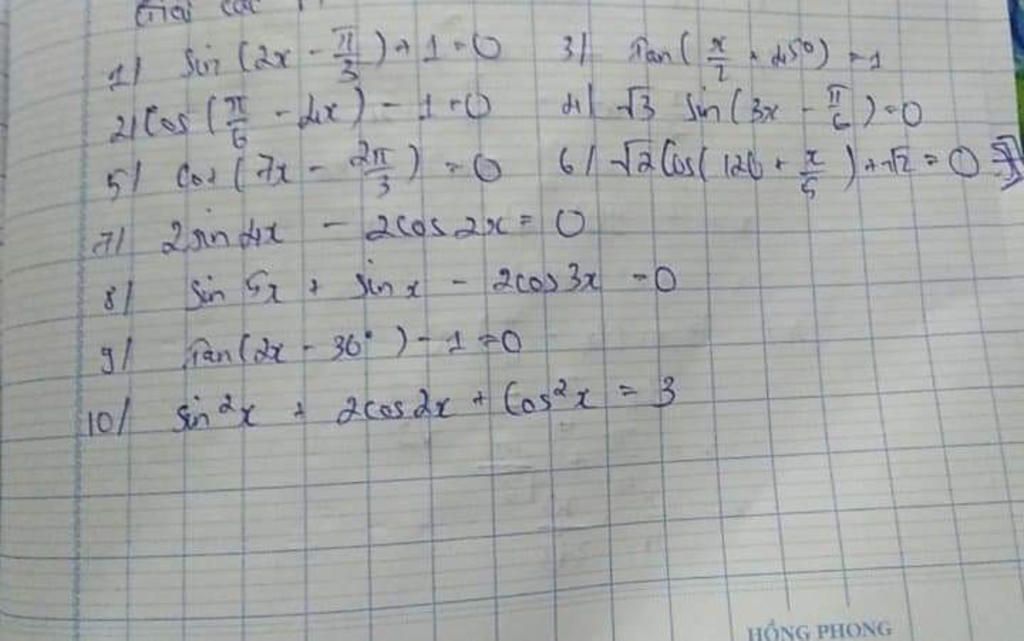 Giải các
1) sin (2x - π/3) + 1 = 0 3) tan (x/2 + 45°) = 1
2) cos (π/6 - 4x) - 1 = 0 4) √3 sin (3x - π/6) = 0
5) (7x - 2π/3) = 0 6) √2 cos( + x/5) + √2 = 0
7) 2sin4x - 2cos2x = 0
8) sin 5x + sin x - 2cos3x = 0
9) tan(2x - 30°) - 1 = 0
10) sin²x + 2cos2x + cos²x = 3
HỒNG PHONG